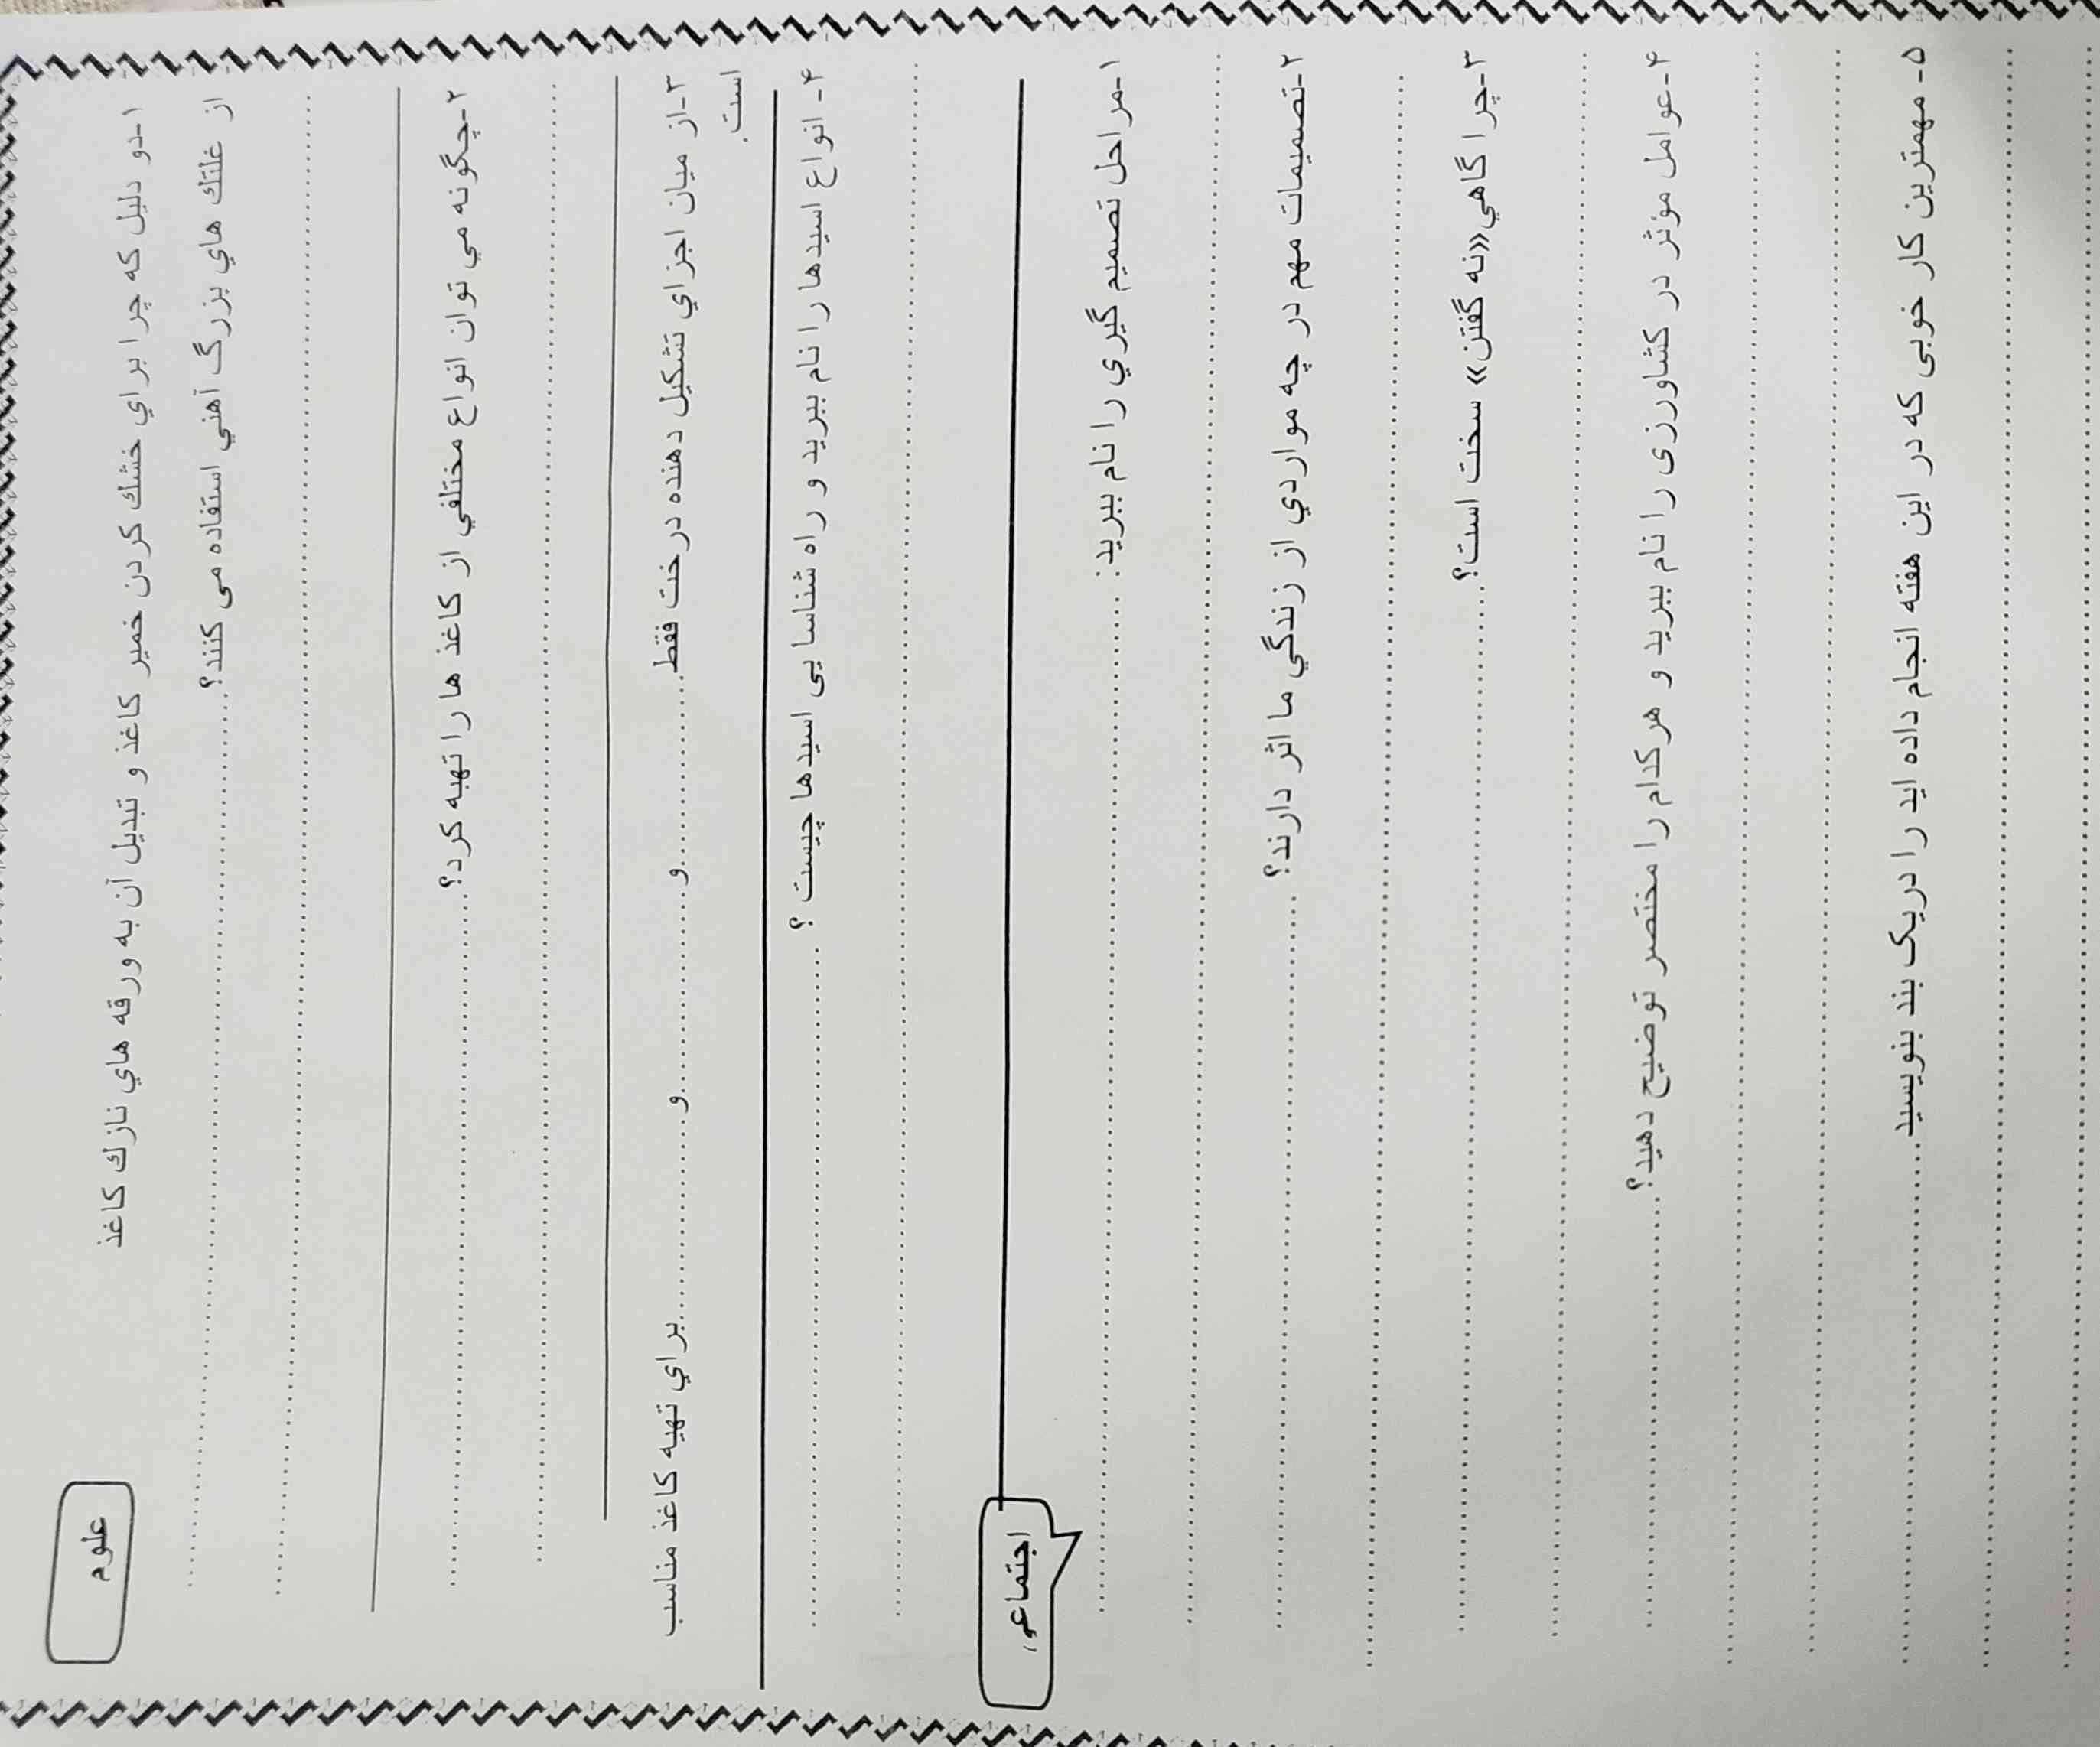 علوم
۱-دو دلیل که چرا براي خشك کردن خمیر کاغذ و تبدیل آن به ورقه هاي نازك کاغذ
از غلتك هاي بزرگ آهني استفاده می کنند؟
۲-چگونه مي توان انواع مختلفي از کاغذ ها را تهیه کرد؟
۳-از میان اجزاي تشکیل دهنده درخت فقط..........و..........و..........براي تهیه کاغذ مناسب
است.
۴- انواع اسیدها را نام ببرید و راه شناسایی اسیدها چیست ؟
اجتماعی
۱-مراحل تصمیم گیري را نام ببرید:
۲-تصمیمات مهم در چه مواردي از زندگي ما اثر دارند؟
۳-چرا گاهي«نه گفتن» سخت است؟
۴-عوامل مؤثر در کشاورزی را نام ببرید و هرکدام را مختصر توضیح دهید؟
۵- مهمترین کار خوبی که در این هفته انجام داده اید را دریک بند بنویسید